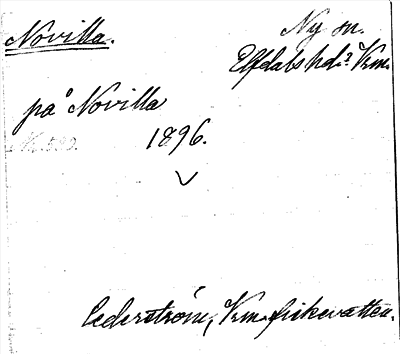 Novilla.
Ny sn.
Elfdals hd: Vrm.
på Novilla
1896.
Cederström, Vrm. fiskevatten.